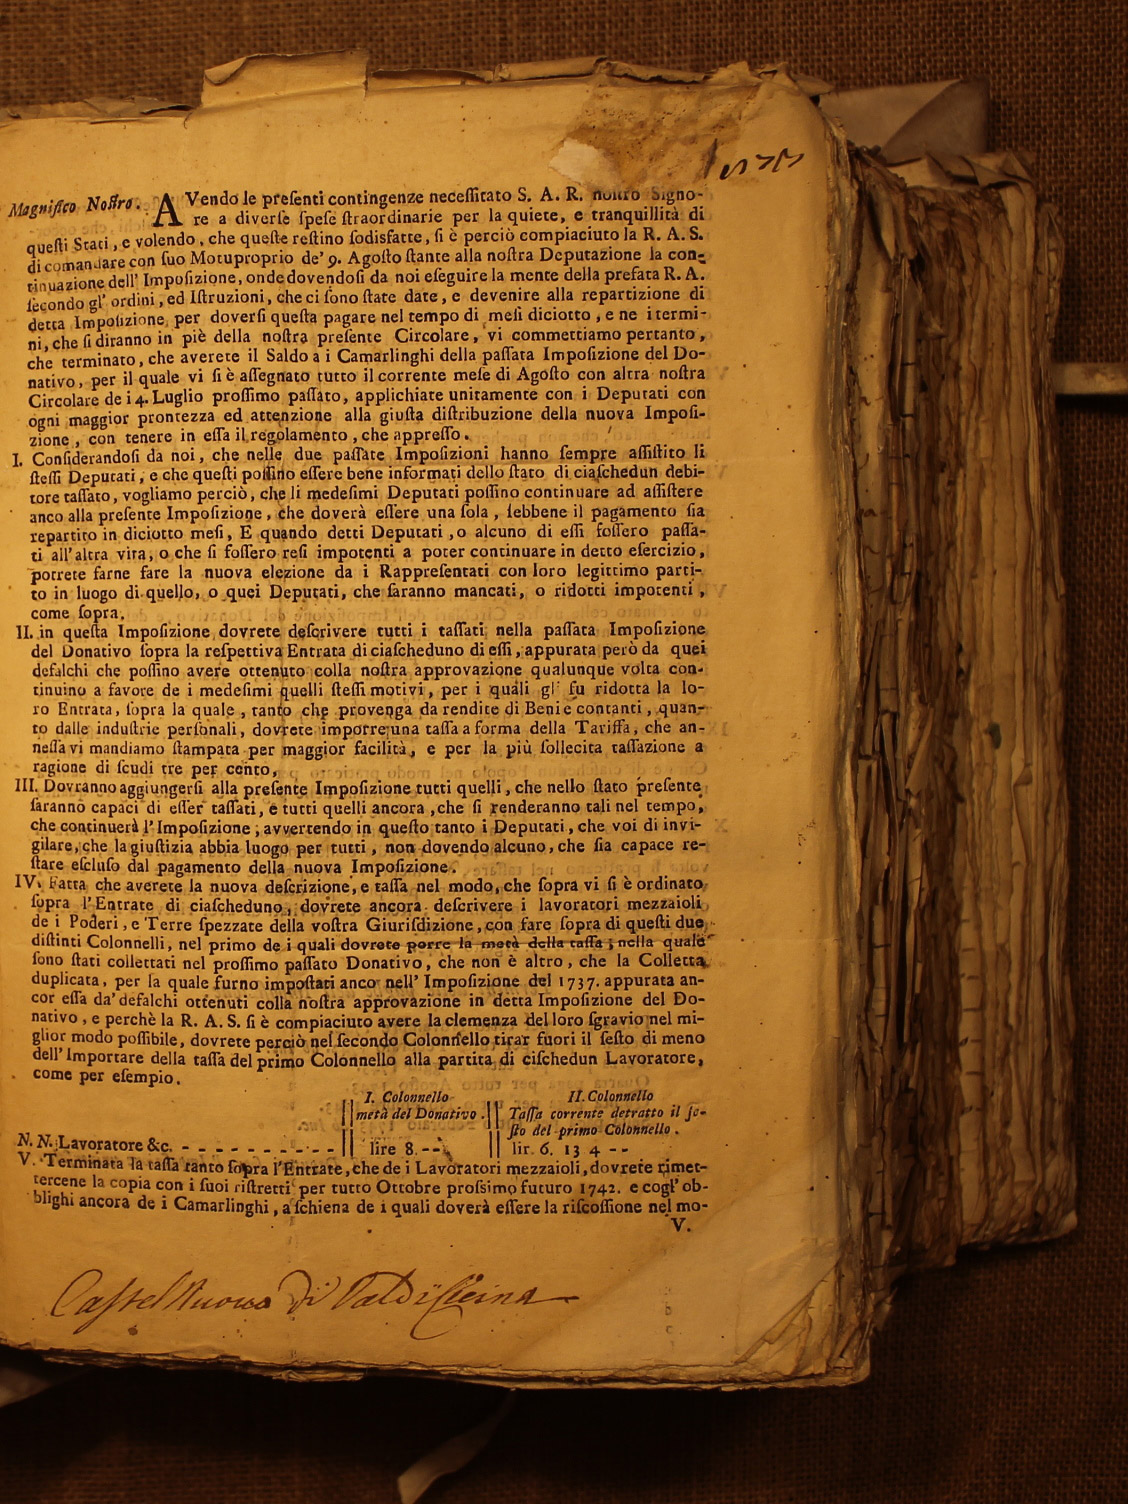 Magnifico Nostro. AVendo le preſenti contingenze neceſſitato S. A. R. noſtro Signo-
re a diverſe ſpeſe ſtraordinarie per la quiete, e tranquillità di
queſti Stati, e volendo, che queſte reſtino ſodisfatte, ſi è perciò compiaciuto la R. A. S.
di comandare con ſuo Motuproprio de' 9. Agoſto ſtante alla noſtra Deputazione la con-
tinuazione dell' Impoſizione, onde dovendoſi da noi eſeguire la mente della prefata R. A.
ſecondo gl' ordini, ed Iſtruzioni, che ci ſono ſtate date, e devenire alla repartizione di
detta Impoſizione, per doverſi queſta pagare nel tempo di meſi diciotto, e ne i termi-
ni, che ſi diranno in piè della noſtra preſente Circolare, vi commettiamo pertanto,
che terminato, che averete il Saldo a i Camarlinghi della paſſata Impoſizione del Do-
nativo, per il quale vi ſi è aſſegnato tutto il corrente meſe di Agoſto con altra noſtra
Circolare de i 4. Luglio proſſimo paſſato, applichiate unitamente con i Deputati con
ogni maggior prontezza ed attenzione alla giuſta diſtribuzione della nuova Impoſi-
zione, con tenere in eſſa il regolamento, che appreſſo.
I. Conſiderandoſi da noi, che nelle due paſſate Impoſizioni hanno ſempre aſſiſtito li
ſteſſi Deputati, e che queſti poſſino eſſere bene informati dello ſtato di ciaſchedun debi-
tore taſſato, vogliamo perciò, che li medeſimi Deputati poſſino continuare ad aſſiſtere
anco alla preſente Impoſizione, che doverà eſſere una ſola, ſebbene il pagamento ſia
repartito in diciotto meſi, E quando detti Deputati, o alcuno di eſſi foſſero paſſa-
ti all'altra vita, o che ſi foſſero reſi impotenti a poter continuare in detto eſercizio,
potrete farne fare la nuova elezione da i Rappreſentati con loro legittimo parti-
to in luogo di quello, o quei Deputati, che ſaranno mancati, o ridotti impotenti,
come ſopra.
II. in queſta Impoſizione dovrete deſcrivere tutti i taſſati nella paſſata Impoſizione
del Donativo ſopra la reſpettiva Entrata di ciaſcheduno di eſſi, appurata però da quei
defalchi che poſſino avere ottenuto colla noſtra approvazione qualunque volta con-
tinuino a favore de i medeſimi quelli ſteſſi motivi, per i quali gl' fu ridotta la lo-
ro Entrata, ſopra la quale, tanto che provenga da rendite di Beni e contanti, quan-
to dalle induſtrie perſonali, dovrete imporre una taſſa a forma della Tariffa, che an-
neſſa vi mandiamo ſtampata per maggior facilità, e per la più ſollecita taſſazione a
ragione di ſcudi tre per cento,
III. Dovranno aggiungerſi alla preſente Impoſizione tutti quelli, che nello ſtato preſente
ſaranno capaci di eſſer taſſati, e tutti quelli ancora, che ſi renderanno tali nel tempo,
che continuerà l'Impoſizione; avvertendo in queſto tanto i Deputati, che voi di invi-
gilare, che la giuſtizia abbia luogo per tutti, non dovendo alcuno, che ſia capace re-
ſtare eſcluſo dal pagamento della nuova Impoſizione.
IV. Fatta che averete la nuova deſcrizione, e taſſa nel modo, che ſopra vi ſi è ordinato
ſopra l'Entrate di ciaſcheduno, dovrete ancora deſcrivere i lavoratori mezzaioli
de i Poderi, e Terre ſpezzate della voſtra Giuriſdizione, con fare ſopra di queſti due
diſtinti Colonnelli, nel primo de i quali dovrete porre la metà della taſſa; nella quale
ſono ſtati collettati nel proſſimo paſſato Donativo, che non è altro, che la Colletta
duplicata, per la quale furno impoſtati anco nell' Impoſizione del 1737. appurata an-
cor eſſa da' defalchi ottenuti colla noſtra approvazione in detta Impoſizione del Do-
nativo, e perchè la R. A. S. ſi è compiaciuto avere la clemenza del loro ſgravio nel mi-
glior modo poſſibile, dovrete perciò nel ſecondo Colonnello tirar fuori il ſeſto di meno
dell' Importare della taſſa del primo Colonnello alla partita di ciſchedun Lavoratore,
come per eſempio.
I. Colonnello II. Colonnello
metà del Donativo. Taſſa corrente detratto il ſe-
ſto del primo Colonnello.
N. N. Lavoratore &c. - - - - - - - - - - lire 8. - - lir. 6. 13 4 - -
V. Terminata la taſſa tanto ſopra l'Entrate, che de i Lavoratori mezzaioli, dovrete rimet-
tercene la copia con i ſuoi riſtretti per tutto Ottobre proſſimo futuro 1742. e cogl' ob-
blighi ancora de i Camarlinghi, a ſchiena de i quali doverà eſſere la riſcoſſione nel mo-
V.
Castelnuovo di Valdi Cecina